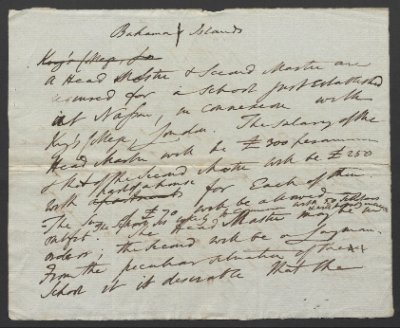 Bahama Islands
King's College, Lo
A Head Master & Second Master are
required for a School just established
at Nassau, in connexion with
King's College London. The Salary of the
Head Master will be £300 per annum
& that of the Second Master will be £250
with apartments part of a house for Each of them
The Sum of £70 will be allowed
outfit. The Head Master may be in
orders; the Second will be a Layman.
From the peculiar situation of the
School it is desirable that the